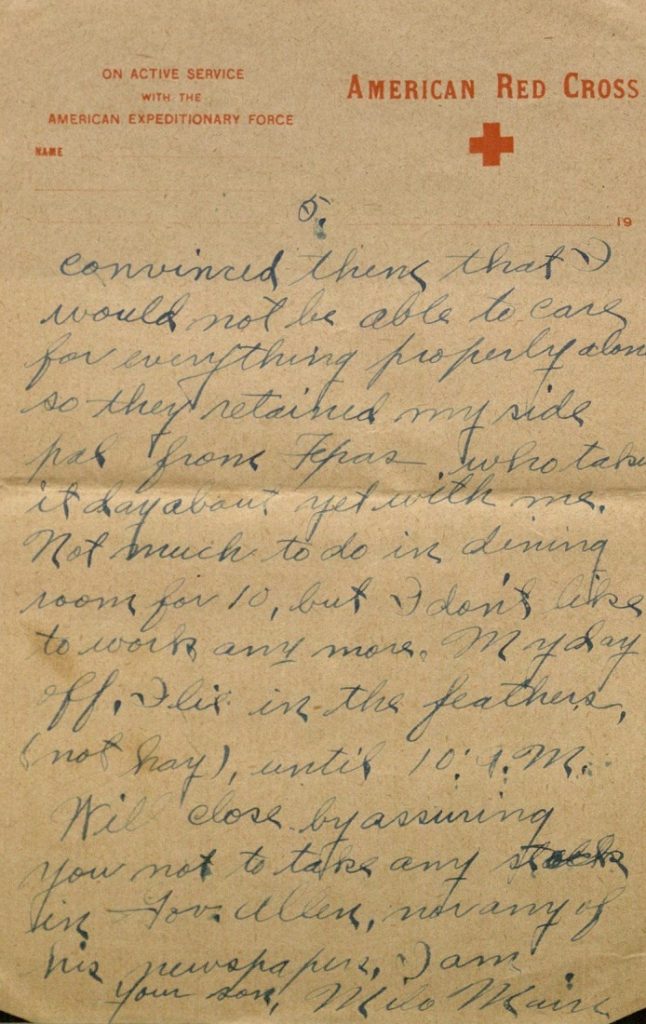 ON ACTIVE SERVICE
WITH THE
AMERICAN EXPEDITIONARY FORCE
AMERICAN RED CROSS
NAME
5.
19
convinced them that I
would not be able to care
for everything properly alone
so they retained my side
pal from Texas who takes
it day about yet with me.
Not much to do in dining
room for 10, but I don't like
to work any more. My day
off, I lie in the feathers,
(not hay), until 10: A.M.
Will close by assuring
you not to take any stock
in Gov. Allen, nor any of
his newspapers, I am
Your son, Milo